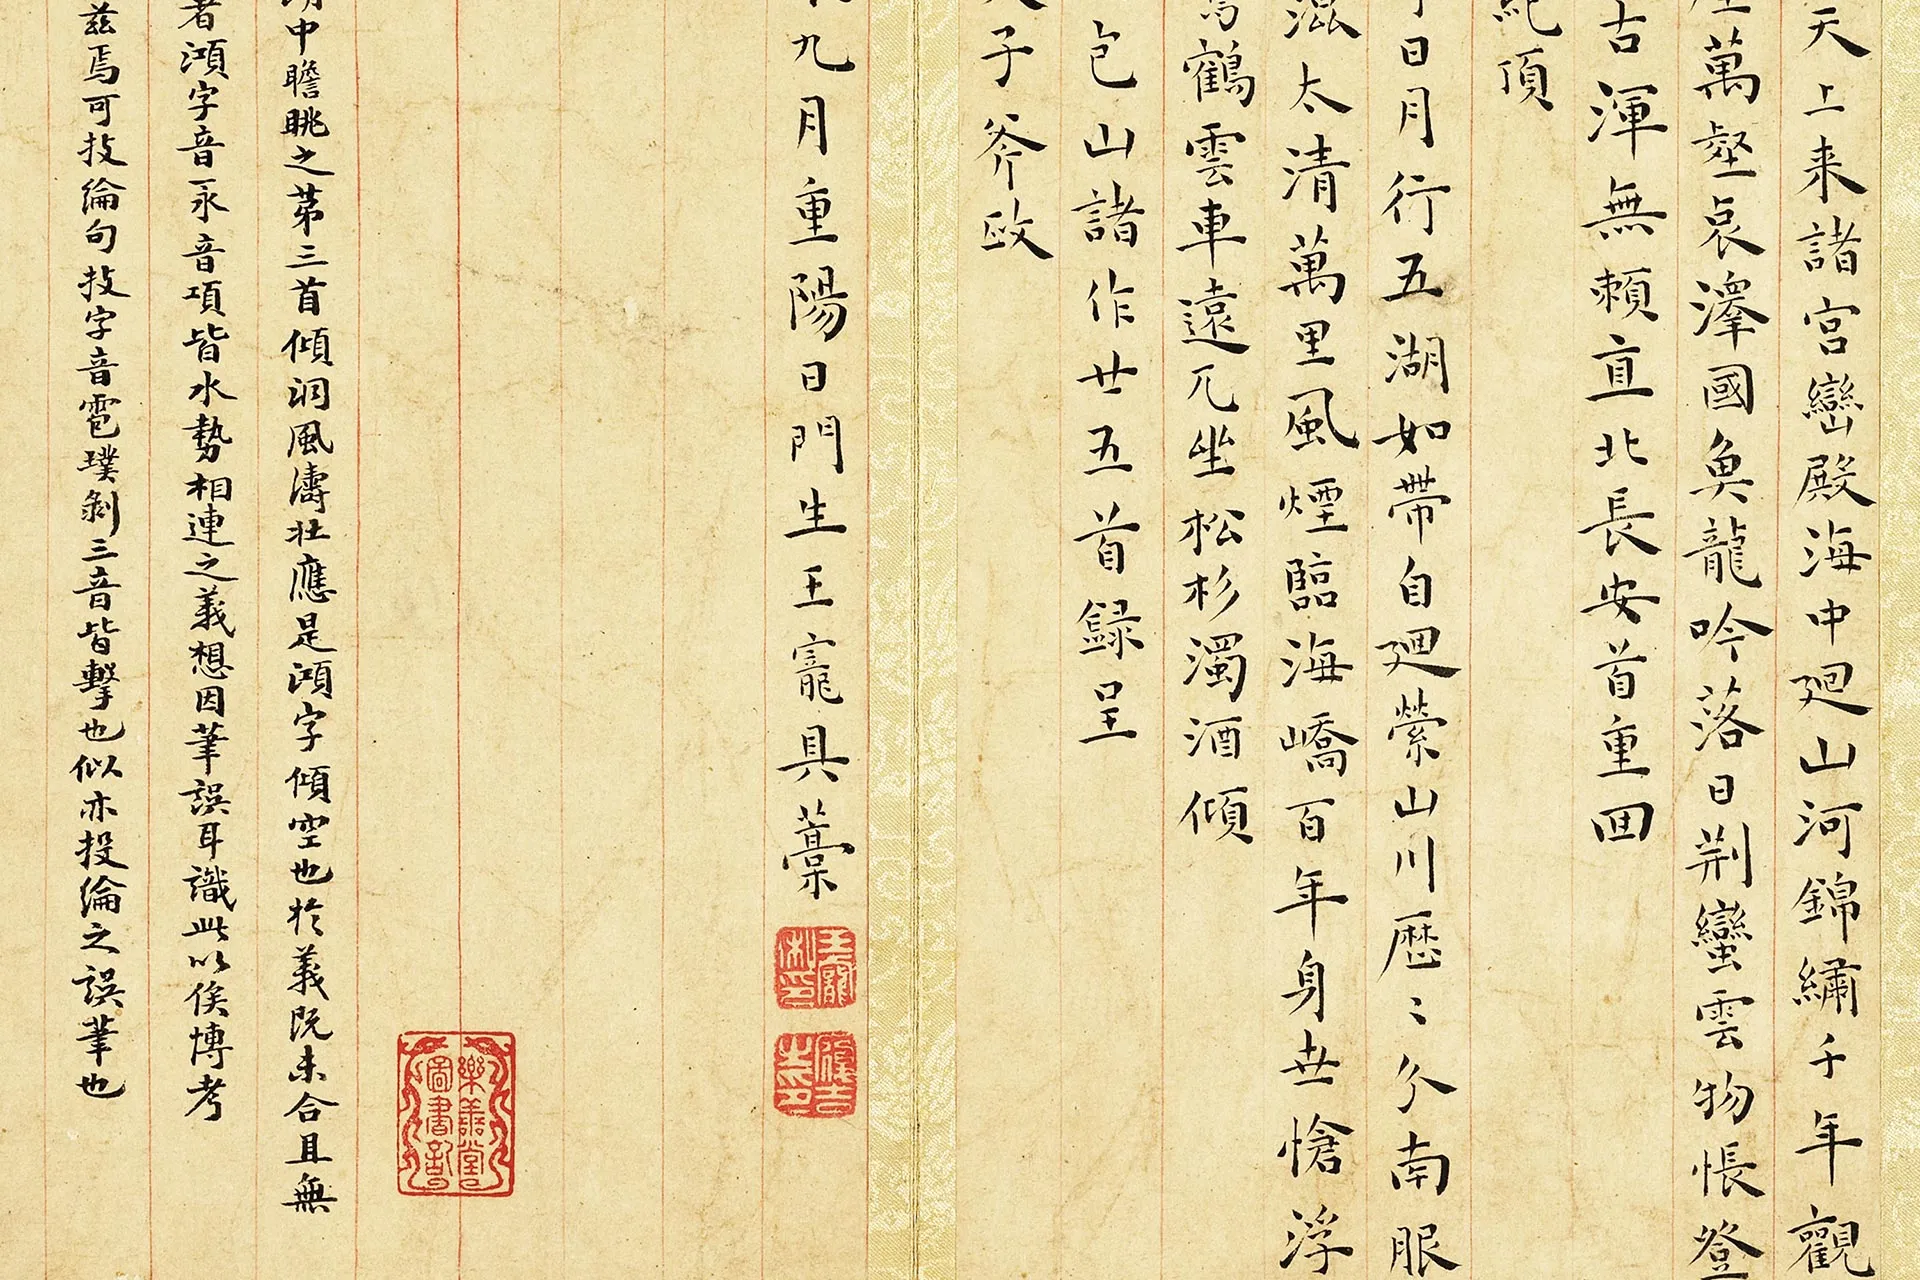 天上来諸宮巒殿海中廻山河錦繡千年觀
萬壑哀澤國魚龍吟落日荆蠻雲物悵登
古渾無賴直北長安首重回
頂
日月行五湖如帶自廻縈山川歷〻分南服
混太清萬里風煙臨海嶠百年身世愴浮
鶴雲車遠兀坐松杉濁酒傾
包山諸作廿五首録呈
子斧政
九月重陽日門生王寵具藁
王寵私印
樂善堂圖書記
中瞻眺之苐三首傾洞風濤壯應是澒字傾空也於義既未合且無
者澒字音永音項皆水勢相連之義想因筆誤耳識此以俟博考
兹焉可技綸句技字音雹璞剝三音皆擊也似亦投綸之誤筆也